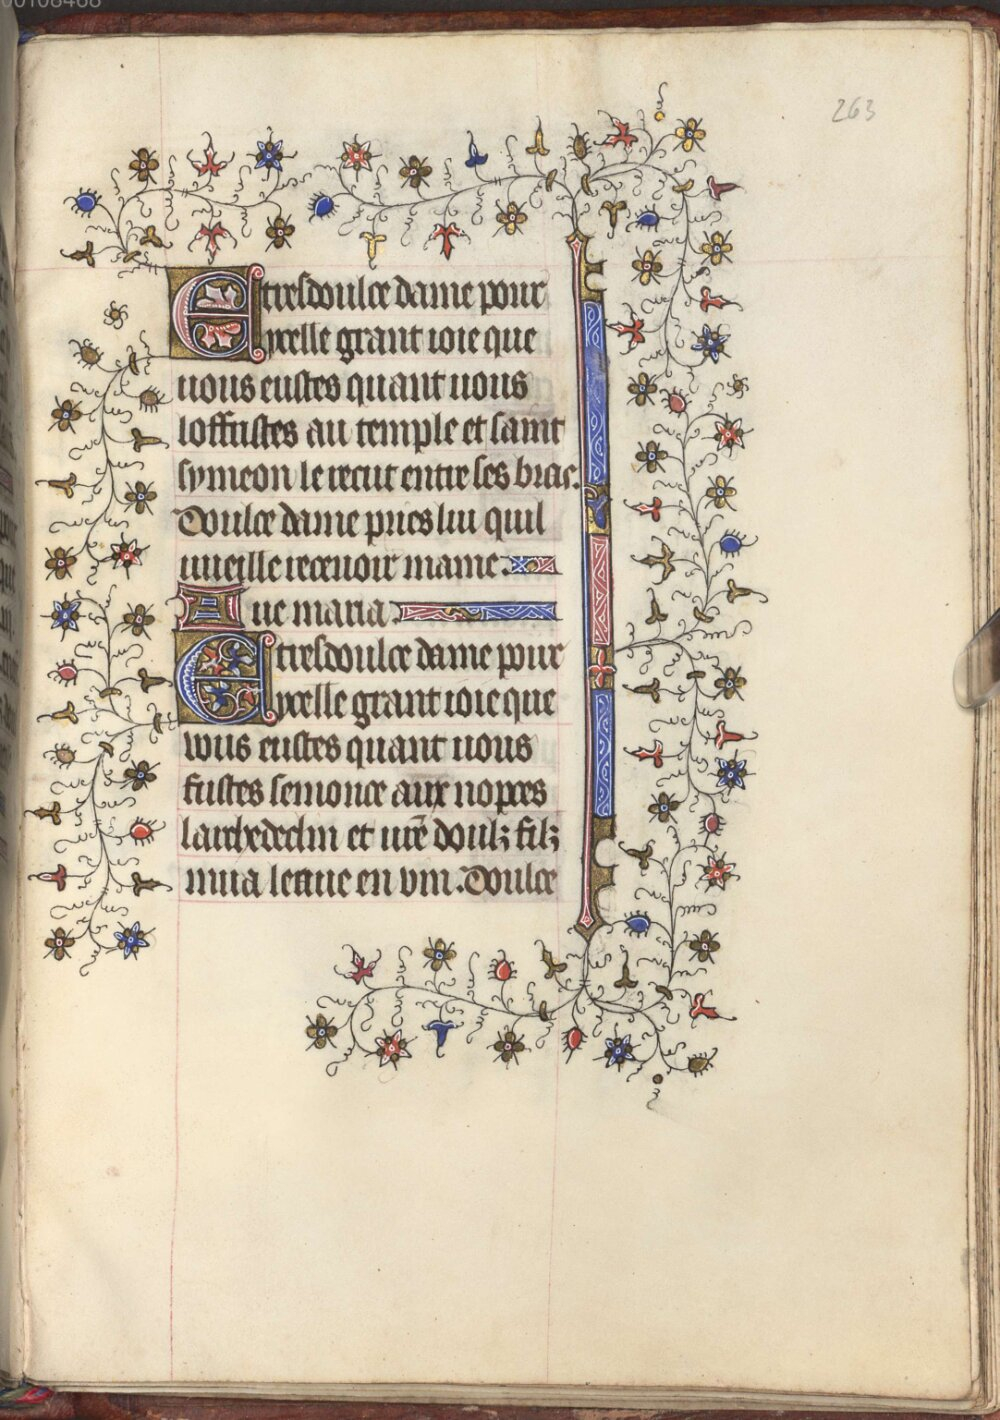 00108468
263
E tresdoulce dame pour
ycelle grant ioie que
uous eustes quant uous
loffristes au temple et saint
symeon le recut entre ses bras.
Doulce dame pries lui quil
uueille receuoir mame.
Aue maria.
E tresdoulce dame pour
ycelle grant ioie que
vous eustes quant uous
fustes semonce aux nopces
larchedeclin et vr̄e doulz filz
mua leaue en vin. Doulce